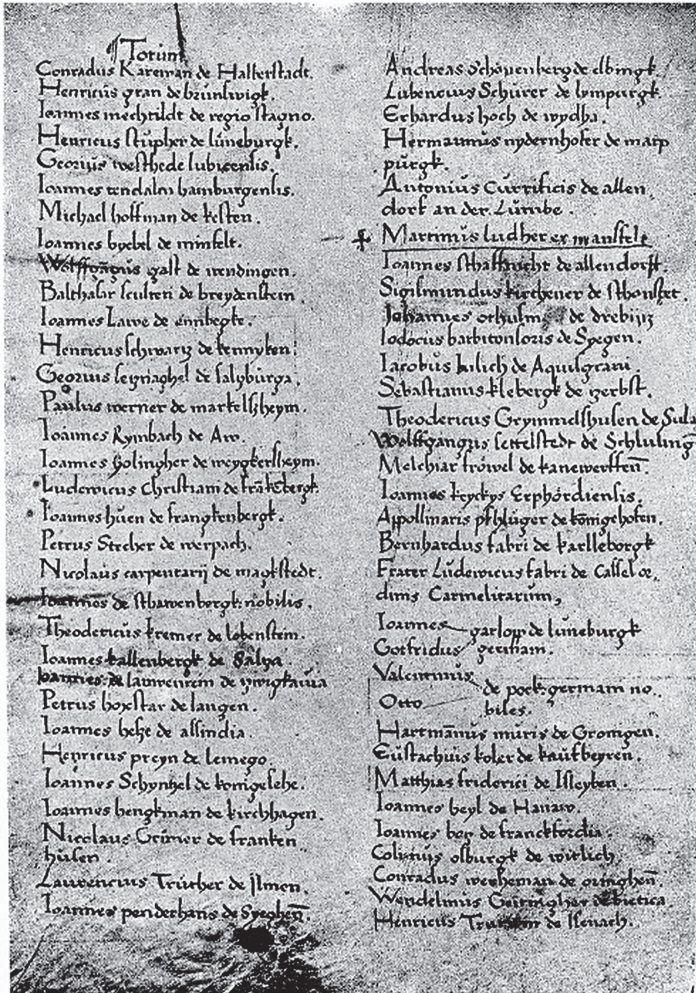 ¶ Totum
Conradus Kareman de Halberstadt.
Henricus gran de brunswigk.
Ioannes mechtildt de regio stagno.
Henricus stupher de luneburgk.
Georius westhede lubicensis.
Ioannes tendalen hamburgensis.
Michael hoffman de kesten.
Ioannes byebel de minfelt.
Wolffgangus gast de wendingen.
Balthasar sculteti de breydenstein.
Ioannes Lawe de
Henricus schwartz de kennyken.
Georius seynaghel de salzburga.
Paulus werner de markelszheym.
Ioannes Rymbach de Aw.
Ioannes Golingher de weygkersheym.
Ludewicus Christiani de franckebergk.
Ioannes huen de frangkenbergk.
Petrus Strcher de werpach.
Nicolaus carpentarij de magkstedt.
Ioannes de sthawenbergk nobilis.
Theodericus kremer de lobenstein.
Ioannes kallenbergk de Salza.
Ioannes de
Petrus hoxstar de langen.
Ioannes hehe de assindia.
Henricus preyn de lemego.
Ioannes Schynhel de konigeslehe.
Ioannes hengkman de kirchhagen.
Nicolaus Grimer de franken
husen.
Laurencius Truther de Ilmen.
Ioannes penderhans de Syeghen.
Andreas Schouenberg de elbingk.
Lubencius Schurer de lympurgk.
Erhardus hoch de wydha.
Hermannus nydernhofer de marp
purgk.
Antonius Currificis de allen
dorf an der Lumbe.
Martinus ludher ex mansfelt
Ioannes schaffnicht de allendorff.
Sigismundus kirchener de sthonstet.
Johannes de drebijz
Iodocus barbitonsoris de Spegen.
Iacobus hilich de Aquisgrani.
Sebastianus klebergk de zerbst.
Theodericus Grymmelshusen de Sula
Wolffgangus settelstedt de Schlusing
Melchiar frowel de kanewerffen.
Ioannes kryckys Erphordiensis.
Appollinaris phluger de konigehofen.
Bernhardus fabri de karlleborgk
Frater Ludewicus fabri de Cassel or
dinis Carmelitarum,
Ioannes garlop de luneburgk
Gotfridus germani.
Valentinus de poek germani no
Otto biles.
Hartmannus muris de Gronigen.
Eustachius koler de kaufbeyren.
Matthias friderici de Isleyben.
Ioannes beyl de Hanaw.
Ioannes ber de franckfordia.
Colinus osburgk de witlich.
Conradus werheman de oringhen.
Wendelinus Geitingher de bietica
Henricus de Isenach.